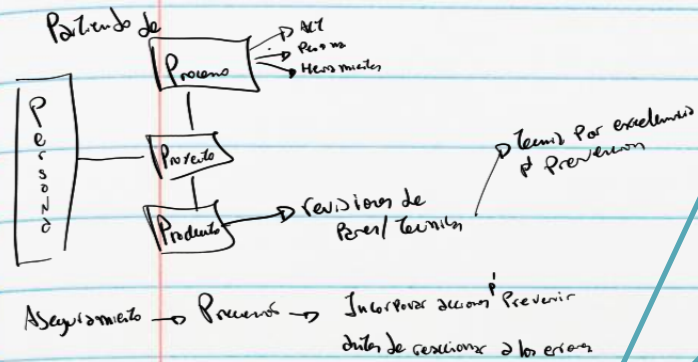 Partiendo de
Proceso
Act
Persona
Herramientas
Persona
Proyecto
Producto
revisiones de
Pares/ Tecnicas
Tecnica Por excelencia
p' Prevencion
Aseguramiento → Procesos → Incorporar acciones p' Prevenir
antes de reaccionar a los errores